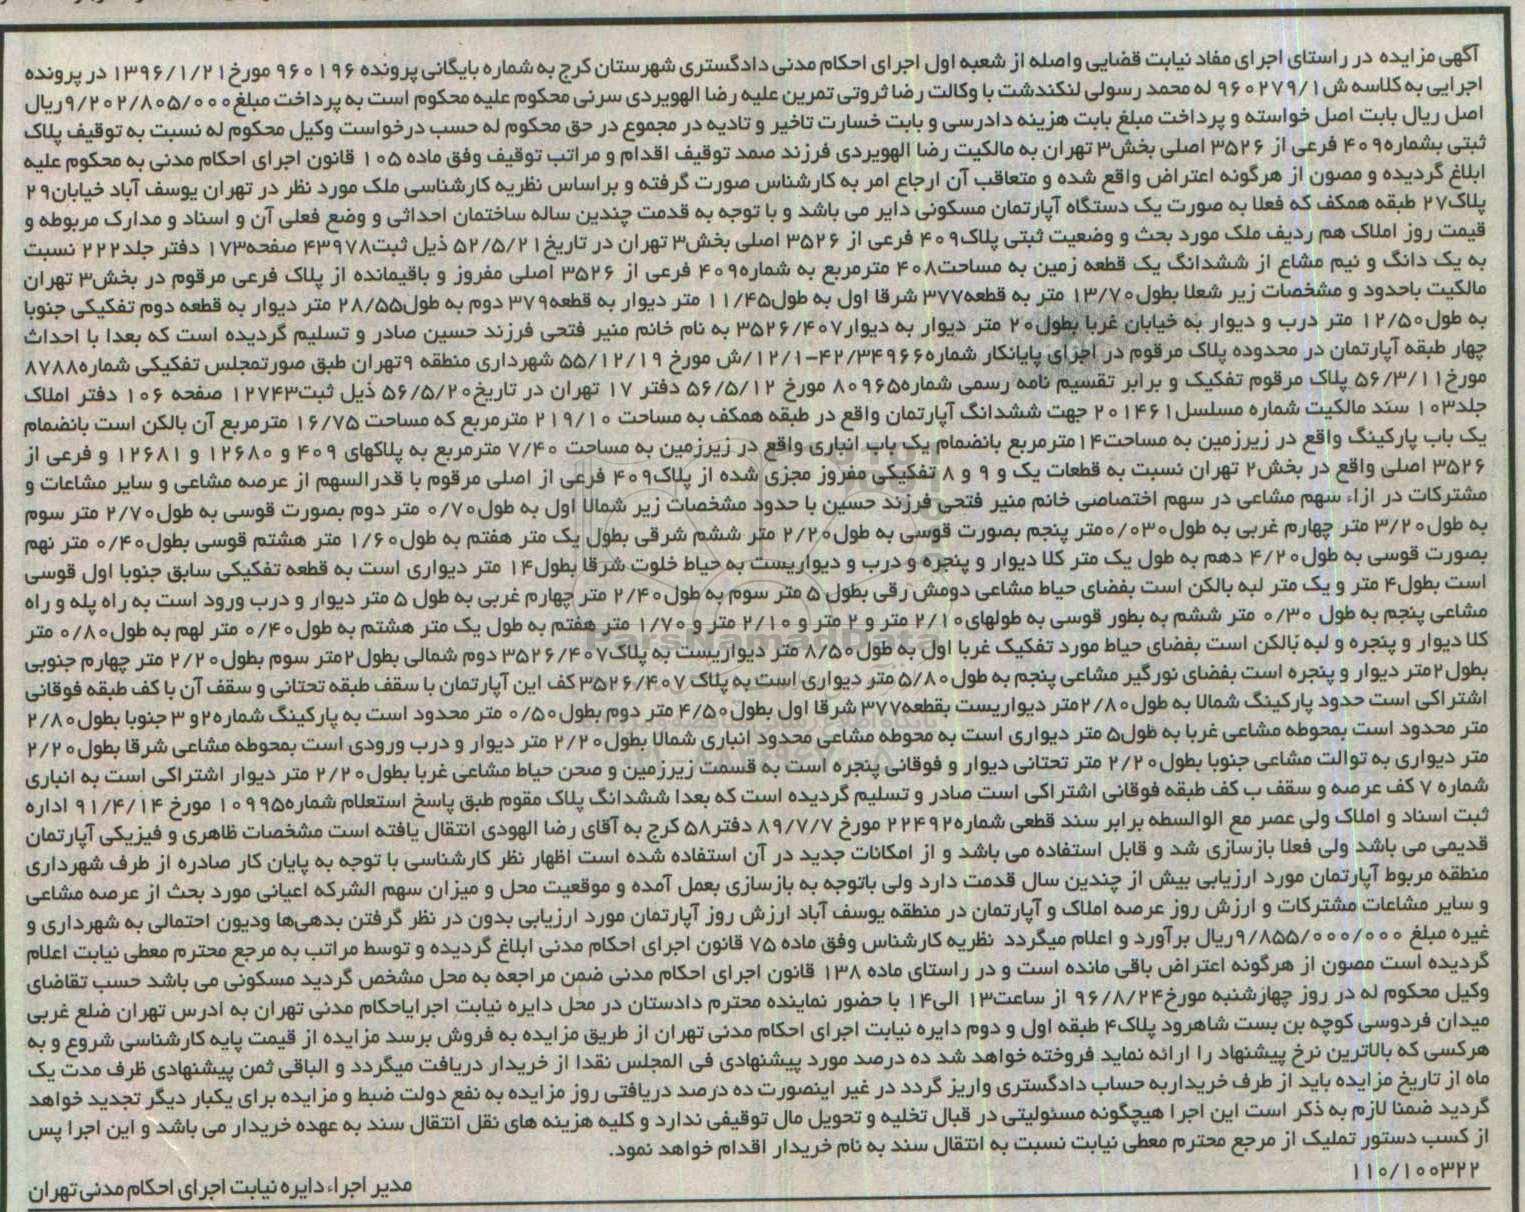 آگهی مزایده در راستای اجرای مفاد نیابت قضایی واصله از شعبه اول اجرای احکام مدنی دادگستری شهرستان کرج به شماره بایگانی پرونده ۹۶۰۱۹۶ مورخ۱۳۹۶/۱/۲۱ در پرونده
اجرایی به کلاسه ش ۹۶۰۲۷۹/۱ له محمد رسولی لنکندشت با وکالت رضا ثروتی تمرین علیه رضا الهویردی سرنی محکوم علیه محکوم است به پرداخت مبلغ۹/۲۰۲/۸۰۵/۰۰۰ریال
اصل ریال بابت اصل خواسته و پرداخت مبلغ بابت هزینه دادرسی و بابت خسارت تاخیر و تادیه در مجموع در حق محکوم له حسب درخواست وکیل محکوم له نسبت به توقیف پلاک
ثبتی بشماره۴۰۹ فرعی از ۳۵۲۶ اصلی بخش۳ تهران به مالکیت رضا الهویردی فرزند صمد توقیف اقدام و مراتب توقیف وفق ماده ۱۰۵ قانون اجرای احکام مدنی به محکوم علیه
ابلاغ گردیده و مصون از هرگونه اعتراض واقع شده و متعاقب آن ارجاع امر به کارشناس صورت گرفته و براساس نظریه کارشناسی ملک مورد نظر در تهران یوسف آباد خیابان۲۹
پلاک۲۷ طبقه همکف که فعلا به صورت یک دستگاه آپارتمان مسکونی دایر می باشد و با توجه به قدمت چندین ساله ساختمان احداثی و وضع فعلی آن و اسناد و مدارک مربوطه و
قیمت روز املاک هم ردیف ملک مورد بحث و وضعیت ثبتی پلاک۴۰۹ فرعی از ۳۵۲۶ اصلی بخش۳ تهران در تاریخ۵۲/۵/۲۱ ذیل ثبت۴۳۹۷۸ صفحه۱۷۳ دفتر جلد۲۲۲ نسبت
به یک دانگ و نیم مشاع از ششدانگ یک قطعه زمین به مساحت۴۰۸ مترمربع به شماره۴۰۹ فرعی از ۳۵۲۶ اصلی مفروز و باقیمانده از پلاک فرعی مرقوم در بخش۳ تهران
مالکیت باحدود و مشخصات زیر شعلا بطول۱۳/۷۰ متر به قطعه۳۷۷ شرقا اول به طول۱۱/۴۵ متر دیوار به قطعه۳۷۹ دوم به طول۲۸/۵۵ متر دیوار به قطعه دوم تفکیکی جنوبا
به طول۱۲/۵۰ متر درب و دیوار به خیابان غربا بطول۲۰ متر دیوار به دیوار۳۵۲۶/۴۰۷ به نام خانم منیر فتحی فرزند حسین صادر و تسلیم گردیده است که بعدا با احداث
چهار طبقه آپارتمان در محدوده پلاک مرقوم در اجرای پایانکار شماره۴۲/۳۴۹۶۶-۱۲/۱/ش مورخ ۵۵/۱۲/۱۹ شهرداری منطقه ۹تهران طبق صورتمجلس تفکیکی شماره۸۷۸۸
مورخ۵۶/۳/۱۱ پلاک مرقوم تفکیک و برابر تقسیم نامه رسمی شماره۸۰۹۶۵ مورخ ۵۶/۵/۱۲ دفتر ۱۷ تهران در تاریخ۵۶/۵/۲۰ ذیل ثبت۱۲۷۴۳ صفحه ۱۰۶ دفتر املاک
جلد۱۰۳ سند مالکیت شماره مسلسل۲۰۱۴۶۱ جهت ششدانگ آپارتمان واقع در طبقه همکف به مساحت ۲۱۹/۱۰ مترمربع که مساحت ۱۶/۷۵ مترمربع آن بالکن است بانضمام
یک باب پارکینگ واقع در زیرزمین به مساحت۱۴مترمربع بانضمام یک باب انباری واقع در زیرزمین به مساحت ۷/۴۰ مترمربع به پلاکهای ۴۰۹ و ۱۲۶۸۰ و ۱۲۶۸۱ و فرعی از
۳۵۲۶ اصلی واقع در بخش۲ تهران نسبت به قطعات یک و ۹ و ۸ تفکیکی مفروز مجزی شده از پلاک۴۰۹ فرعی از اصلی مرقوم با قدرالسهم از عرصه مشاعی و سایر مشاعات و
مشترکات در ازاء سهم مشاعی در سهم اختصاصی خانم منیر فتحی فرزند حسین با حدود مشخصات زیر شمالا اول به طول۰/۷۰ متر دوم بصورت قوسی به طول۲/۷۰ متر سوم
به طول۳/۲۰ متر چهارم غربی به طول۰/۰۳۰متر پنجم بصورت قوسی به طول۲/۲۰ متر ششم شرقی بطول یک متر هفتم به طول۱/۶۰ متر هشتم قوسی بطول۰/۴۰ متر نهم
بصورت قوسی به طول۴/۲۰ دهم به طول یک متر کلا دیوار و پنجره و درب و دیواریست به حیاط خلوت شرقا بطول۱۴ متر دیواری است به قطعه تفکیکی سابق جنوبا اول قوسی
است بطول۴ متر و یک متر لبه بالکن است بفضای حیاط مشاعی دومش رقی بطول ۵ متر سوم به طول۲/۴۰ متر چهارم غربی به طول ۵ متر دیوار و درب ورود است به راه پله و راه
مشاعی پنجم به طول ۰/۳۰ متر ششم به بطور قوسی به طولهای۲/۱۰ متر و ۲ متر و ۲/۱۰ متر و ۱/۷۰ متر هفتم به طول یک متر هشتم به طول۰/۴۰ متر لهم به طول۰/۸۰ متر
کلا دیوار و پنجره و لبه بالکن است بفضای حیاط مورد تفکیک غربا اول به طول۸/۵۰ متر دیواریست به پلاک۳۵۲۶/۴۰۷ دوم شمالی بطول۲متر سوم بطول۲/۲۰ متر چهارم جنوبی
بطول۲متر دیوار و پنجره است بفضای نورگیر مشاعی پنجم به طول۵/۸۰ متر دیواری است به پلاک ۳۵۲۶/۴۰۷ کف این آپارتمان با سقف طبقه تحتانی و سقف آن با کف طبقه فوقانی
اشتراکی است حدود پارکینگ شمالا به طول۲/۸۰متر دیواریست بقطعه۳۷۷ شرقا اول بطول۴/۵۰ متر دوم بطول۰/۵۰ متر محدود است به پارکینگ شماره۲و ۳ جنوبا بطول۲/۸۰
متر محدود است بمحوطه مشاعی غربا به طول۵ متر دیواری است به محوطه مشاعی محدود انباری شمالا بطول۲/۲۰ متر دیوار و درب ورودی است بمحوطه مشاعی شرقا بطول۲/۲۰
متر دیواری به توالت مشاعی جنوبا بطول۲/۲۰ متر تحتانی دیوار و فوقانی پنجره است به قسمت زیرزمین و صحن حیاط مشاعی غربا بطول۲/۲۰ متر دیوار اشتراکی است به انباری
شماره ۷ کف عرصه و سقف ب کف طبقه فوقانی اشتراکی است صادر و تسلیم گردیده است که بعدا ششدانگ پلاک مقوم طبق پاسخ استعلام شماره۱۰۹۹۵ مورخ ۹۱/۴/۱۴ اداره
ثبت اسناد و املاک ولی عصر مع الوالسطه برابر سند قطعی شماره۲۲۴۹۲ مورخ ۸۹/۷/۷ دفتر۵۸ کرج به آقای رضا الهودی انتقال یافته است مشخصات ظاهری و فیزیکی آپارتمان
قدیمی می باشد ولی فعلا بازسازی شد و قابل استفاده می باشد و از امکانات جدید در آن استفاده شده است اظهار نظر کارشناسی با توجه به پایان کار صادره از طرف شهرداری
منطقه مربوط آپارتمان مورد ارزیابی بیش از چندین سال قدمت دارد ولی باتوجه به بازسازی بعمل آمده و موقعیت محل و میزان سهم الشرکه اعیانی مورد بحث از عرصه مشاعی
و سایر مشاعات مشترکات و ارزش روز عرصه املاک و آپارتمان در منطقه یوسف آباد ارزش روز آپارتمان مورد ارزیابی بدون در نظر گرفتن بدهی‌ها ودیون احتمالی به شهرداری و
غیره مبلغ ۹/۸۵۵/۰۰۰/۰۰۰ریال برآورد و اعلام میگردد نظریه کارشناس وفق ماده ۷۵ قانون اجرای احکام مدنی ابلاغ گردیده و توسط مراتب به مرجع محترم معطی نیابت اعلام
گردیده است مصون از هرگونه اعتراض باقی مانده است و در راستای ماده ۱۳۸ قانون اجرای احکام مدنی ضمن مراجعه به محل مشخص گردید مسکونی می باشد حسب تقاضای
وکیل محکوم له در روز چهارشنبه مورخ۹۶/۸/۲۴ از ساعت۱۳ الی۱۴ با حضور نماینده محترم دادستان در محل دایره نیابت اجرایاحکام مدنی تهران به ادرس تهران ضلع غربی
میدان فردوسی کوچه بن بست شاهرود پلاک۴ طبقه اول و دوم دایره نیابت اجرای احکام مدنی تهران از طریق مزایده به فروش برسد مزایده از قیمت پایه کارشناسی شروع و به
هرکسی که بالاترین نرخ پیشنهاد را ارائه نماید فروخته خواهد شد ده درصد مورد پیشنهادی فی المجلس نقدا از خریدار دریافت میگردد و الباقی ثمن پیشنهادی ظرف مدت یک
ماه از تاریخ مزایده باید از طرف خریداربه حساب دادگستری واریز گردد در غیر اینصورت ده درصد دریافتی روز مزایده به نفع دولت ضبط و مزایده برای یکبار دیگر تجدید خواهد
گردید ضمنا لازم به ذکر است این اجرا هیچگونه مسئولیتی در قبال تخلیه و تحویل مال توقیفی ندارد و کلیه هزینه های نقل انتقال سند به عهده خریدار می باشد و این اجرا پس
از کسب دستور تملیک از مرجع محترم معطی نیابت نسبت به انتقال سند به نام خریدار اقدام خواهد نمود.
۱۱۰/۱۰۰۳۲۲
مدیر اجراء دایره نیابت اجرای احکام مدنی تهران
ParsNamadData